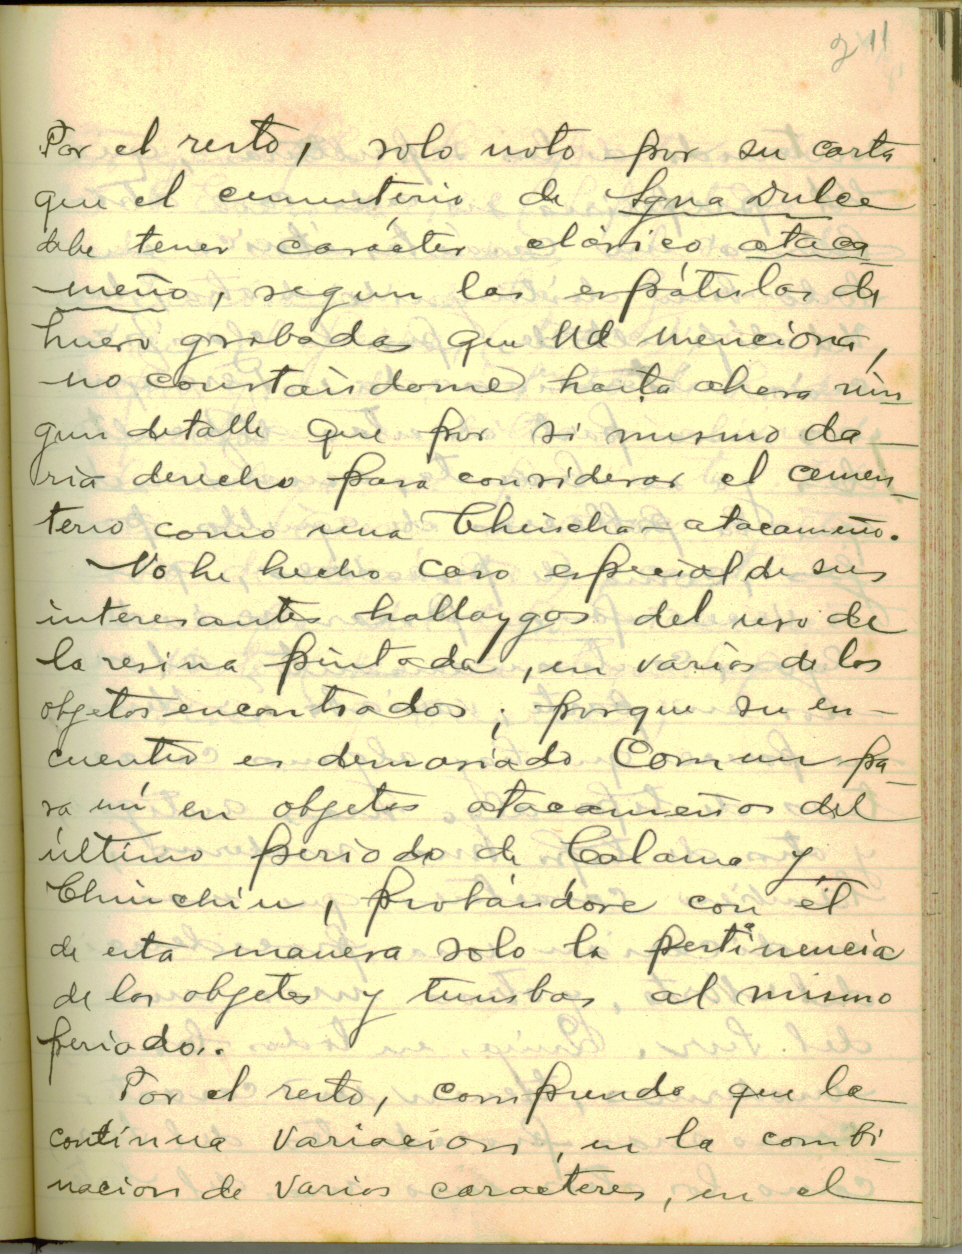 211
Por el resto, solo noto por su carta
que el cementerio de Agua Dulce
debe tener carácter clásico ataca
meño, segun las espátulas de
hueso grabadas que Ud menciona,
no constándome hasta ahora nin-
gun detalle que por si mismo da-
ria derecho para considerar el cemen-
terio como una Chincha-atacameño.
No he hecho caso especial de sus
interesantes hallazgos del uso de
la resina pintada, en varios de los
objetos encontrados; porque su en-
cuentro es demasiado comun pa-
ra mí en objetos atacameños del
último periodo de Calama y
Chiuchiu, probándose con él
de esta manera solo la pertinencia
de los objetos y tumbas al mismo
periodo.
Por el resto, comprendo que la
continua variacion, en la combi-
nacion de varios caracteres, en el